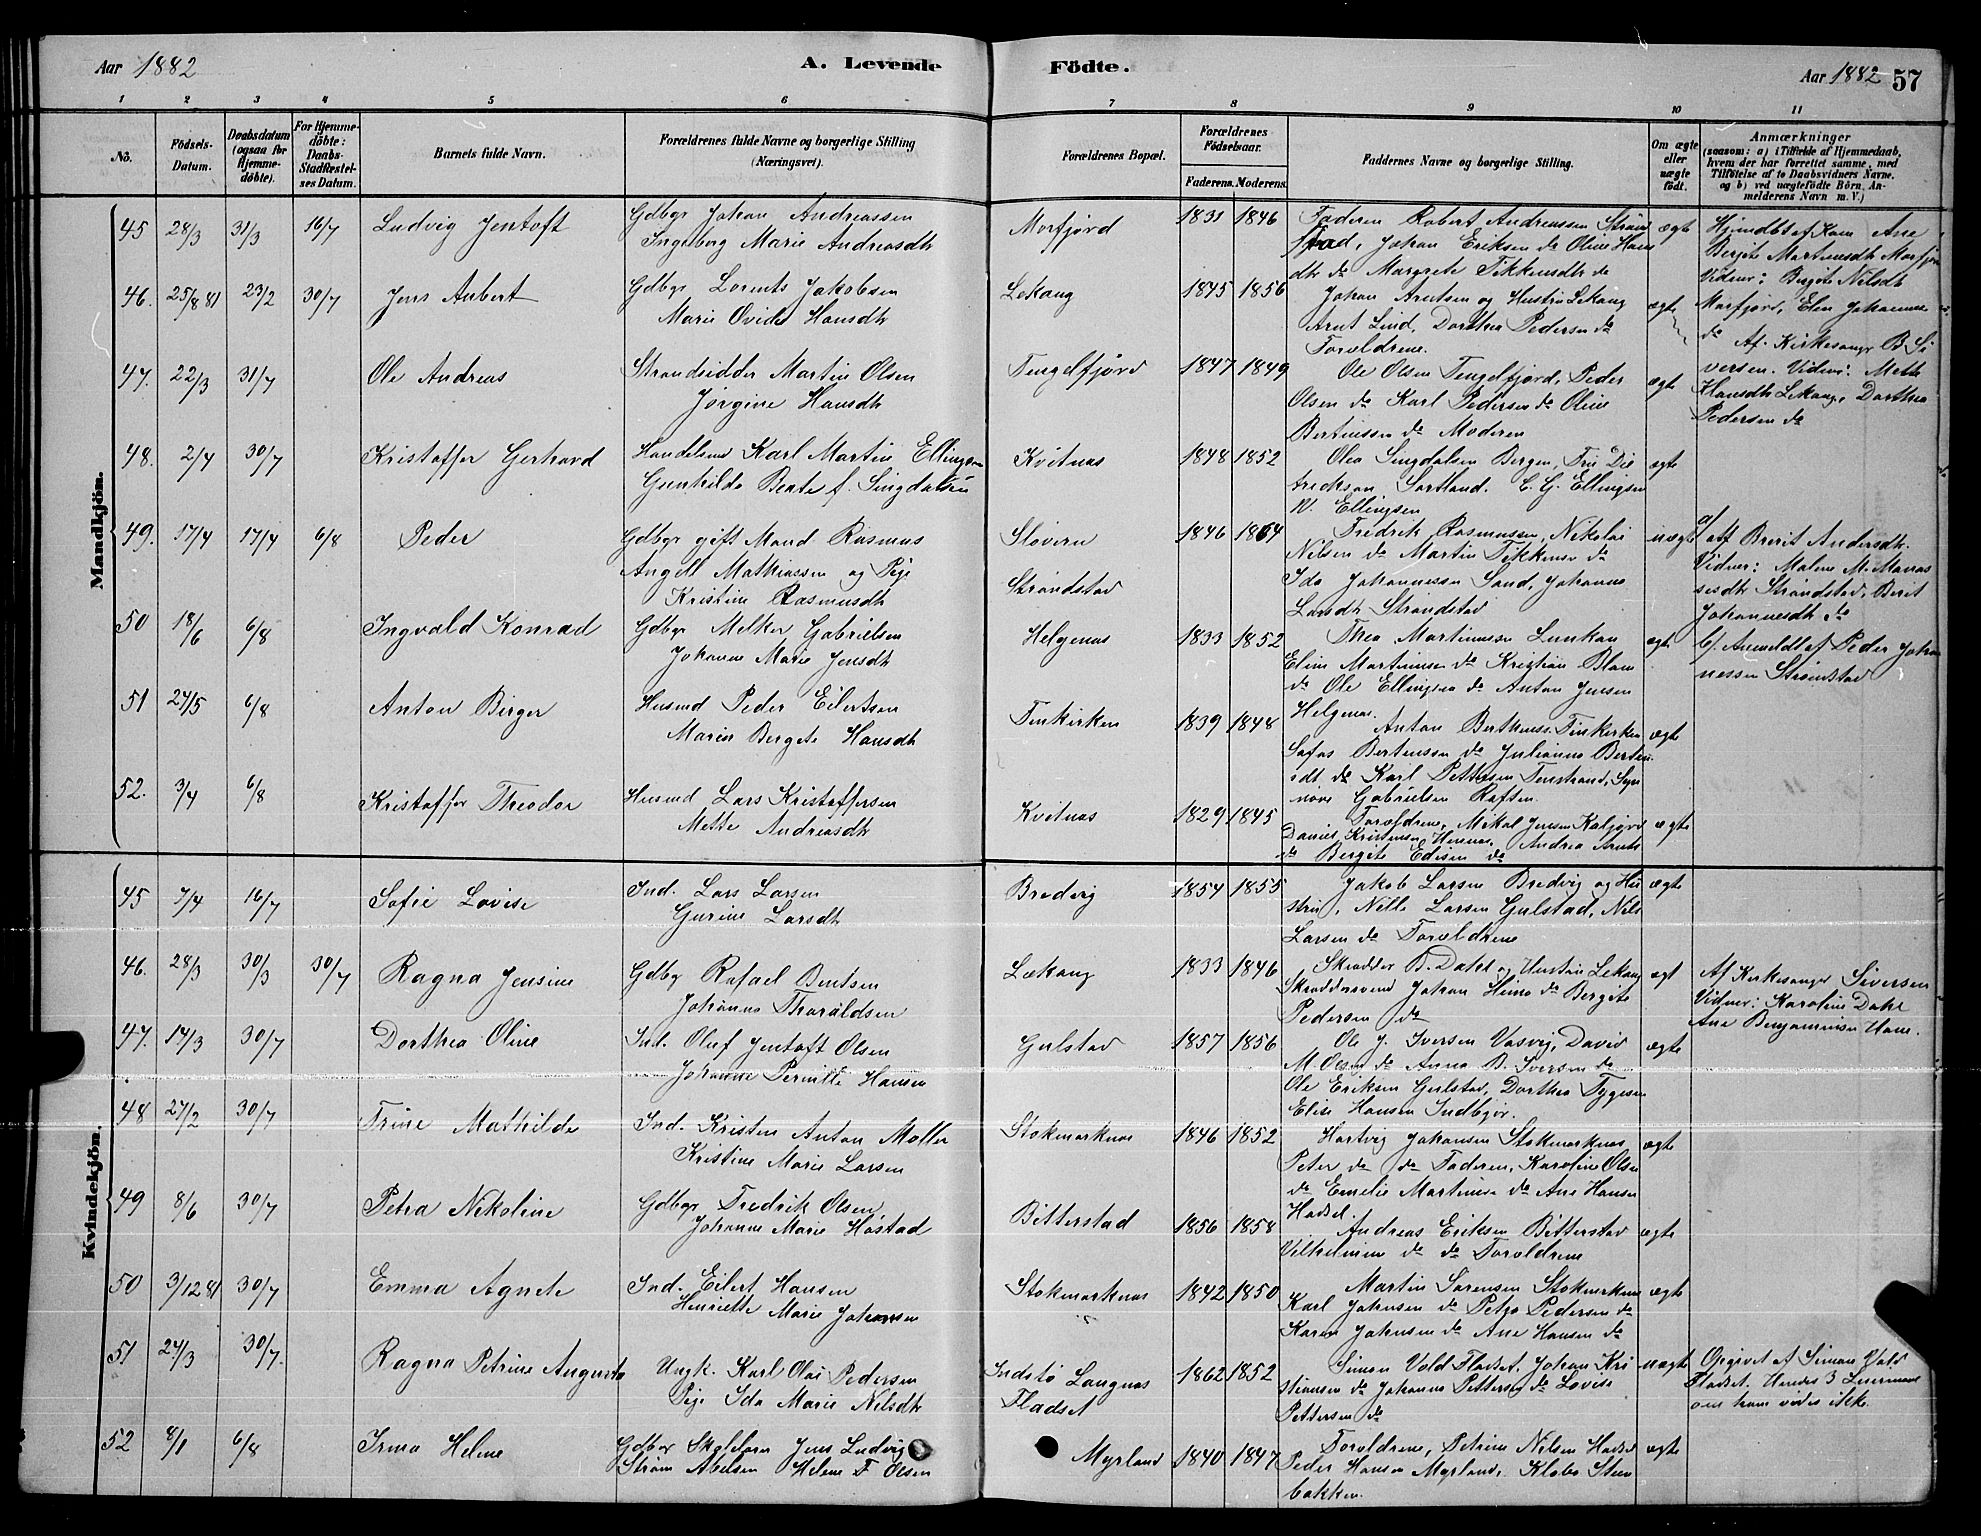 Aar 1882 A. Levende Födte. Aar 1882 57
1 2 3 4 5 6 7 8 9 10 11
No. Födsels-Datum. Daabsdatum (ogsaa for Hjemmedöbte). For Hjemmedöbte: Daabs-Stadfestelses Datum. Barnets fulde Navn. Forældrenes fulde Navne og borgerlige Stilling (Næringsvei). Forældrenes Bopæl. Forældrenes Födselsaar. Faderens. Moderens. Faddernes Navne og borgerlige Stilling. Om ægte eller uægte födt. Anmærkninger (saasom: a) i Tilfælde af Hjemmedaab, hvem der har forrettet samme, med Tilföielse af to Daabsvidners Navne. og b) ved uægtefödte Börn, Anmelderens Navn m. V.)
Mandkjön.
45 28/3 31/3 16/7 Ludvig Jentoft Gdbgr Johan Andreassen
Ingeborg Marie Andreasdtr Morfjord 1831 1846 Faderen Robert Andreassen Strand
stad, Johan Eriksen do Oline Hans
dtr do Margrete Tekkensdtr do ægte Hjemdbt af Kone Ane
Bergite Martinusdt Morfjor
Vidner: Bergite Nilsdt
Morfjord, Elen Johannesen
do
46. 25/8 81 23/2 30/7 Jens Anbert Gdbgr Lorents Jakobsen
Marie Ovidia Hansdtr Lekang 1845 1856 Johan Arntsen og Hustru Lekang
Arnt Lind, Dorthea Pedersen do
Forældrene. ægte Af Kirkesanger B Si
versen. Vidner: Mette
Hansdtr Lekang, Dorthea
Pedersen do
47. 22/3 31/7 Ole Andreas Strandsidder Martin Olsen
Jørgine Hansdtr Tengelfjord 1847 1849 Ole Olsen Tengelfjord, Peder
Olsen do Karl Pedersen do Oline
Bertinssen do Moderen ægte
48. 2/4 30/7 Kristoffer Gerhard Handelsmd Karl Martin Ellingsen
Gunhilda Beate f. Singdalsen Kvitnæs 1848 1852 Olea Singdalsen Bergen, Fru Die
trickson Sortland. C. G. Ellingsen
N. Ellingsen ægte
49. 17/4 17/4 6/8 Peder Gdbgr gift Mand Rasmus
Angell Mathiassen og Pige
Kristine Rasmusdtr Sloveren
Strandstad 1846 1864 Fredrik Rasmussen, Nikolai
Nilsen do Martin Tekkensen do
Ida Johannessen Sand, Johanna
Larsdtr Strandstad uægt a/ Af Brerit Andersdtr.
Vidner: Malene M. Manas
sesdt Strandstad, Berit
Johannesdtr do
b/. Anmeldt af Peder Johan
nessen Strandstad
50 18/6 6/8 Ingvald Konrad Gdbgr Melker Gabrielsen
Johanna Marie Jensdtr Helgenæs 1833 1852 Thea Martinussen Lunkan
Eline Martinusen do Kristian Blom
do Ole Ellingsen do Anton Jensen
Helgenæs. ægte
51 27/5 6/8 Anton Birger Husmd Peder Eilertsen
Maren Bergete Hansdtr Finkirken 1839 1848 Anton Berthinss. Finkirken
Sofus Bertinssen do Julianna Bertin
sdt do Karl Pettersen Finstrand, Syn
nøve Gabrielsen Raften ægte
52. 3/4 6/8 Kristoffer Theodor Husmd Lars Kristoffersen
Mette Andreasdtr Kvitnæs 1829 1845 Forældrene, Mikal Jensen Kaljord
Daniel Kristensen Hennæs, Andrea Arnts
do Bergite Edisen do ægte
Kvindekjön.
45 7/4 16/7 Sofie Lovise Ind. Lars Larsen
Gurine Larsdtr Bredvig 1854 1855 Jakob Larsen Bredvig og Hu
stru, Nille Larsen Gulstad, Nils
Larsen do Forældrene ægte
46. 28/3 30/3 30/7 Ragna Jensine Gdbgr Rafael Bentsen
Johanna Tharaldsen Lækang 1833 1846 Skrædder B. Dahl og Hustru Lekang
Skræddersvend Johan Heimo do Bergite
Pedersen do ægt Af Kirkesanger Siversen
Vidner: Karoline Dahl
Ane Benjaminsen Ham.
47. 14/3 30/7 Dorthea Oline Ind. Oluf Jentoft Olsen
Johanne Pernille Hansen Gulstad 1857 1856 Ole J. Iversen Vasvig, David
M. Olsen do Anna B. Iversen do
Ole Eriksen Gulstad, Dorthea Tygesen
Elise Hansen Indbgjr. ægte
48 27/2 30/7 Trine Mathilde Ind. Kristen Anton Møller
Kristine Marie Larsen Stokmarknæs 1846 1852 Hartvig Johansen Stokmarknæs
Peter do do Faderen, Karoline Olsen
do Emelie Martinsen do Ane Hansen
Hadsel. ægte
49 8/6 30/7 Petra Nikoline Gdbgr Fredrik Olsen
Johanne Marie Høstad Bitterstad 1856 1858 Andreas Eriksen Bitterstad
Vilhelmine do do Forældrene ægte
50 3/12 81 30/7 Emma Agnete Ind. Eilert Hansen
Henriette Marie Johansen Stokmarknæs 1842 1850 Martin Sørensen Stokmarknæs
Karl Johnsen do Petra Pedersen do
Karen Johnsen do Ane Hansen do ægte
51 24/3 30/7. Ragna Petrine Augusta Ungk. Karl Olai Pedersen
Pige Ida Marie Nilsdtr Indstø Langnæs
Fladset 1862 1852 Simon Vold Fladset. Johan Kri
stiansen do Johanna Pettersen do Lovise
Pettersen do uægte Opgivet af Simon Vold
Fladset. Hendes 3 Leiermaal
om ham vides ikke.
52 8/1 6/8 Irma Helene Gdbgr Skolelærer Jens Ludvig
Strøm Abelsen Helene F Olsen Myrland 1840 1847 Forældrene, Petrine Nilsen Hadsel
Peder Hansen Myrland, Klaba Steen
bakken. ægte